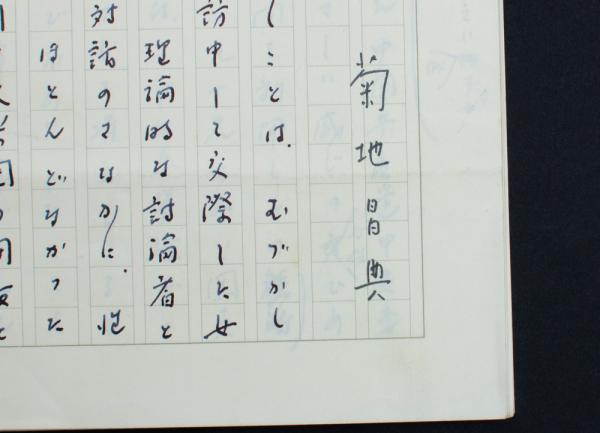 菊地昌典
しことは、むづかし
訪中して交際した女
理論的な討論者と
対話のさなかに、性
ほとんどなかった